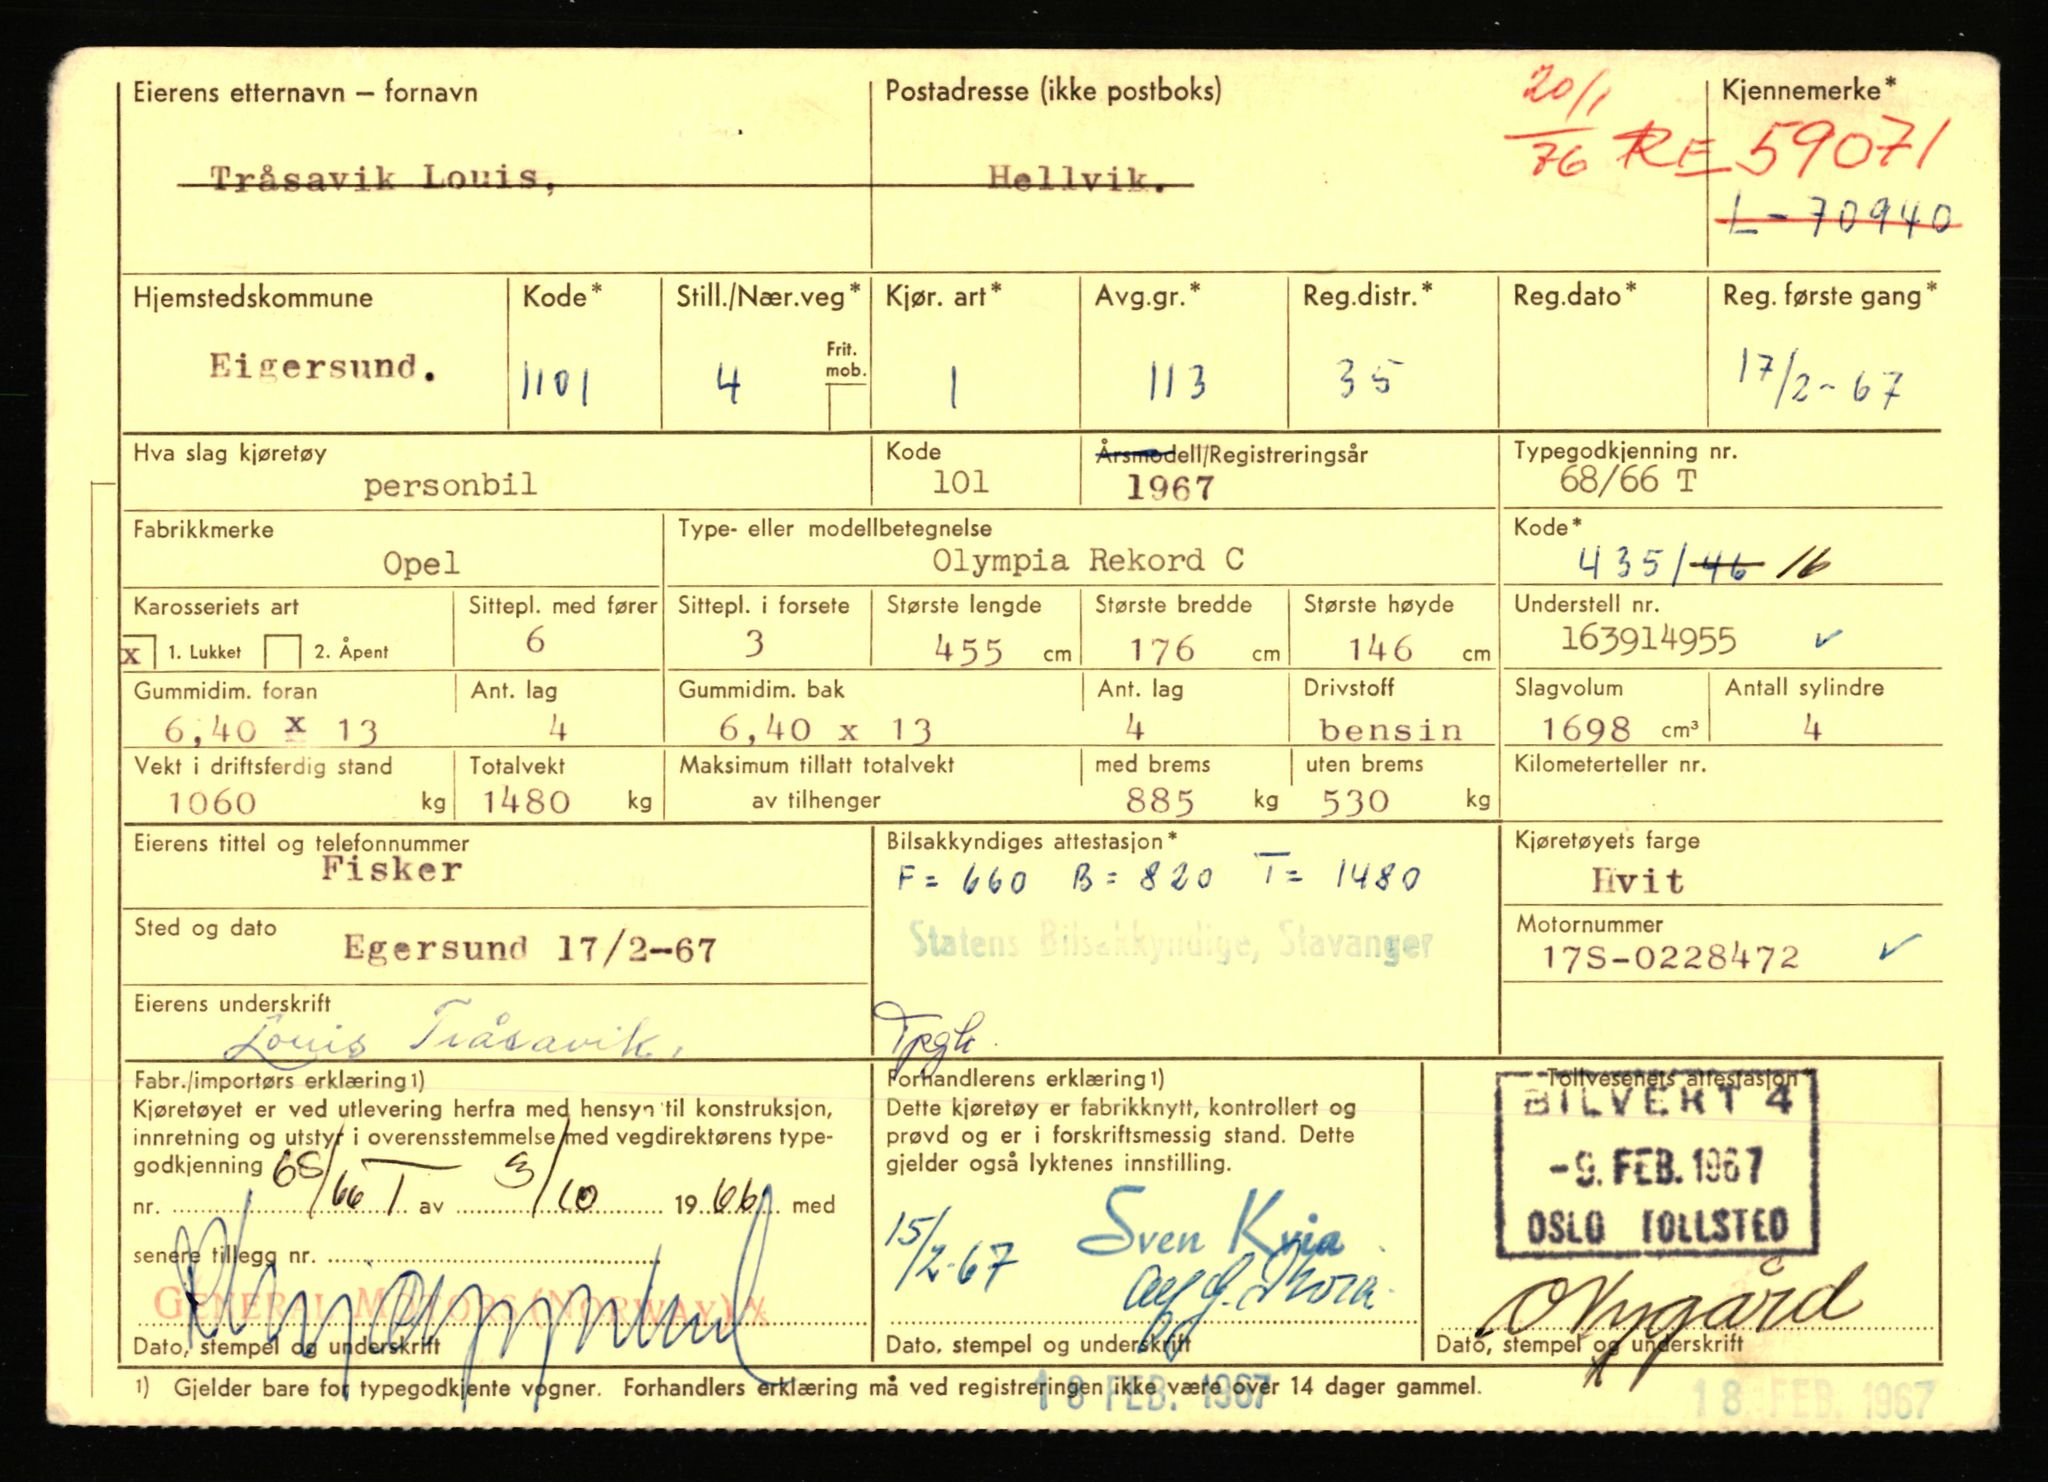 Eierens etternavn – fornavn
Tråsavik Louis,
Postadresse (ikke postboks)
Hellvik.
20/1
76
Kjennemerke*
RE 59071
L - 70940
Hjemstedskommune
Eigersund.
Kode*
1101
Still./Nær.veg*
4
Frit.
mob.
Kjør. art*
1
Avg.gr.*
113
Reg.distr.*
35
Reg.dato*
Reg. første gang*
17/2-67
Hva slag kjøretøy
personbil
Kode
101
Årsmodell/Registreringsår
1967
Typegodkjenning nr.
68/66 T
Fabrikkmerke
Opel
Type- eller modellbetegnelse
Olympia Rekord C
Kode*
435/46 16
Karosseriets art
x 1. Lukket 2. Åpent
Sittepl. med fører
6
Sittepl. i forsete
3
Største lengde
455 cm
Største bredde
176 cm
Største høyde
146 cm
Understell nr.
163914955 ✓
Gummidim. foran
6,40 x 13
Ant. lag
4
Gummidim. bak
6,40 x 13
Ant. lag
4
Drivstoff
bensin
Slagvolum
1698 cm³
Antall sylindre
4
Vekt i driftsferdig stand
1060 kg
Totalvekt
1480 kg
Maksimum tillatt totalvekt
av tilhenger
med brems
885 kg
uten brems
530 kg
Kilometerteller nr.
Eierens tittel og telefonnummer
Fisker
Bilsakkyndiges attestasjon*
F = 660 B = 820 T = 1480
Statens Bilsakkyndige, Stavanger
Kjøretøyets farge
Hvit
Sted og dato
Egersund 17/2-67
Motornummer
17S-0228472 ✓
Eierens underskrift
Louis Tråsavik.
Tpgk.
Fabr./importørs erklæring1)
Kjøretøyet er ved utlevering herfra med hensyn til konstruksjon,
innretning og utstyr i overensstemmelse med vegdirektørens type-
godkjenning
nr. 68/66 T av 3/10 1966 med
senere tillegg nr.
GENERAL MOTORS (NORWAY) A/
Dato, stempel og underskrift
Forhandlerens erklæring1)
Dette kjøretøy er fabrikknytt, kontrollert og
prøvd og er i forskriftsmessig stand. Dette
gjelder også lyktenes innstilling.
15/2-67
Sven Kvia
Dato, stempel og underskrift
Tollvesenets attestasjon*
BILVEKT 4
-9. FEB. 1967
OSLO TOLLSTED
Nygård
Dato, stempel og underskrift
1) Gjelder bare for typegodkjente vogner. Forhandlers erklæring må ved registreringen ikke være over 14 dager gammel.
18 FEB. 1967
18. FEB. 1967